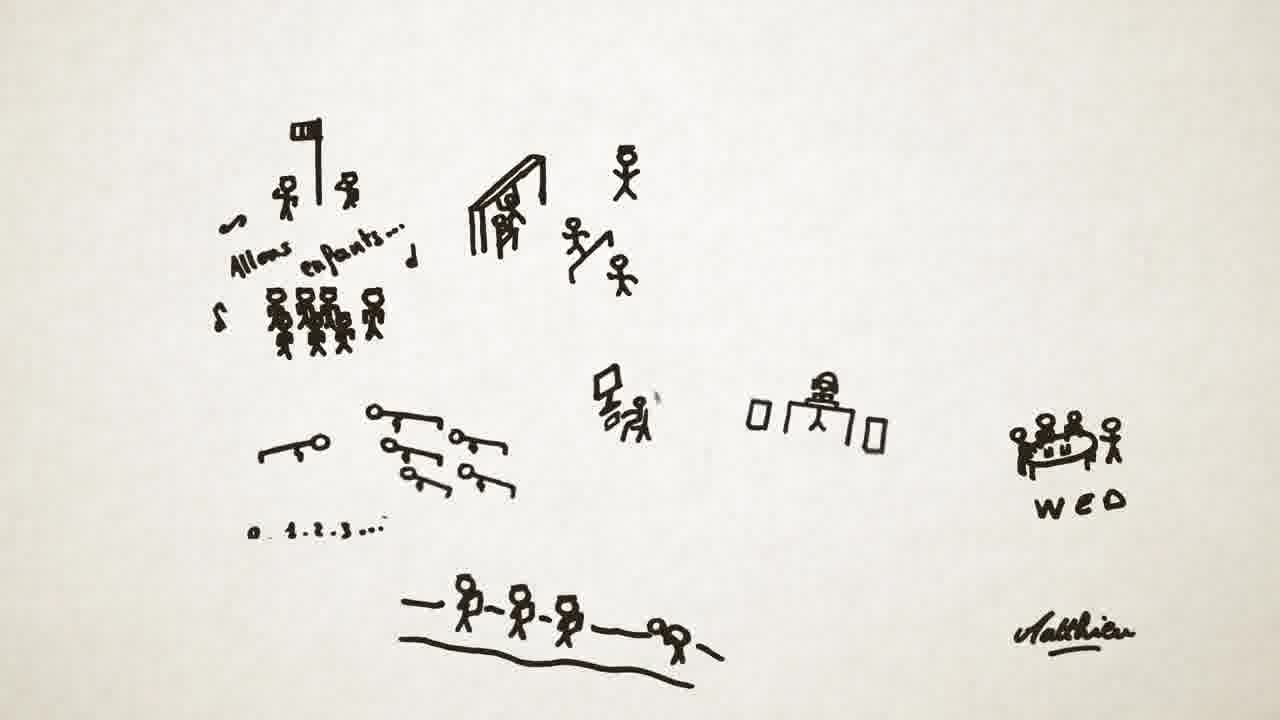 Allons enfants...
0 1.2.3...
WED
Matthieu